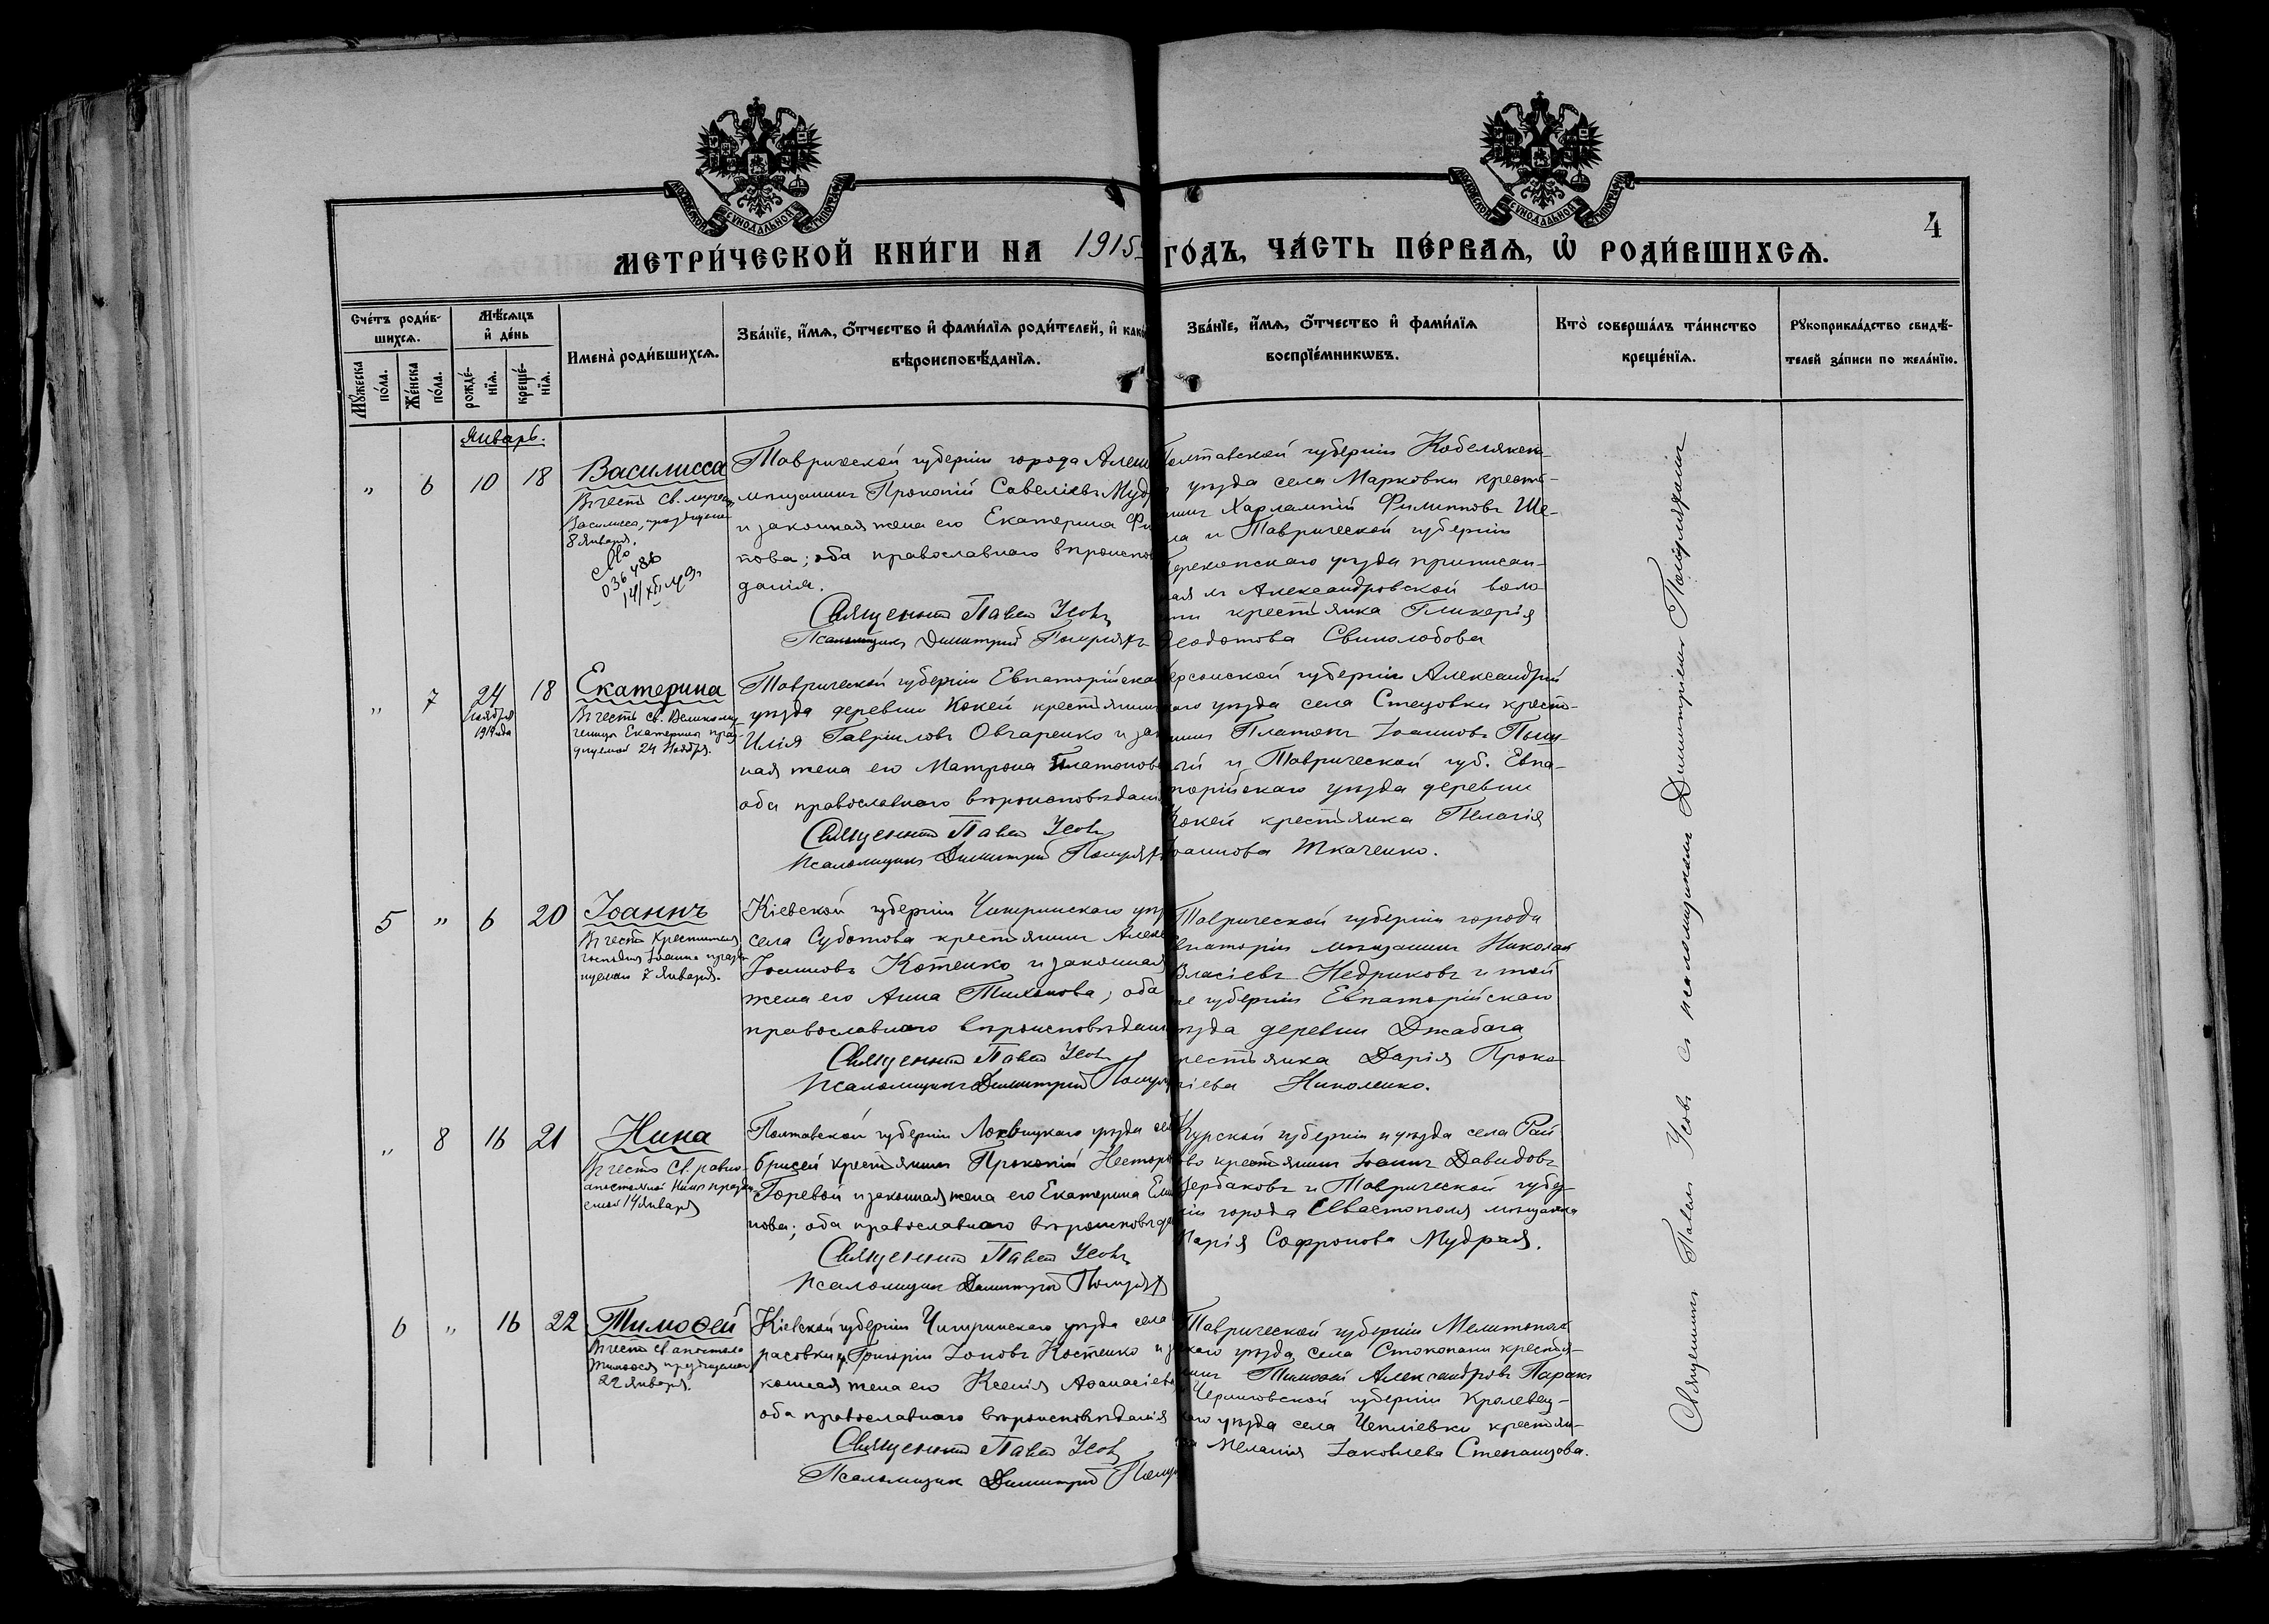 МОСКОВСКОЙ СѴНОДАЛЬНОЙ ТИПОГРАФІИ
МОСКОВСКОЙ СѴНОДАЛЬНОЙ ТИПОГРАФІИ
4
МЕТРИ́ЧЕСКОЙ КНИ́ГИ НА 1915 ГО́ДЪ, ЧА́СТЬ ПЕ́РВАѦ, Ѡ҆ РОДИ́ВШИХСѦ.
Сче́тъ роди́в-
шихсѧ.
Мꙋ́жеска по́ла.
Же́нска по́ла.
Мѣ́сѧцъ
и҆ де́нь
рожде́-нїѧ.
креще́-нїѧ.
Имена̀ роди́вшихсѧ.
Зва́нїе, и҆́мѧ, ѻ҆́тчество и҆ фами́лїѧ роди́телей, и҆ како
вѣроисповѣ́данїѧ.
Зва́нїе, и҆́мѧ, ѻ҆́тчество и҆ фами́лїѧ
воспрїе́мникѡвъ.
Кто̀ соверша́лъ та́инство
креще́нїѧ.
Рꙋкоприкла́дство свидѣ́-
телей за́писи по жела́нїю.
Январь.
" 6 10 18 Василисса
Въ честь св. мучен.
Василисса, празднуемой
8 Января.
036486
14/XII
Таврической губерніи города Алеш
мѣщанинъ Прокопій Савеліевъ Муд
и законная жена его Екатерина Фи
пова; оба православнаго вѣроиспов
данія.
Священникъ Павелъ Усовъ
Псаломщикъ Димитрій
Полтавской губерніи Кобелякск
уѣзда села Марковки крестья-
нинъ Харлампій Филипповъ Ше-
ла и Таврической губерніи
Перекопскаго уѣзда приписан-
ная къ Александровской воло
сти крестьянка Гликерія
Ѳеодотова Свинолобова
" 7 24 18 Екатерина
Ноября
1914 года
Въ честь св. Великому-
ченицы Екатерины праз-
днуемой 24 Ноября.
Таврической губерніи Евпаторійска
уѣзда деревни Кокей крестьянинъ
Илія Гавріиловъ Овчаренко и зак
ная жена его Матрона Платонова
оба православнаго вѣроисповѣдані
Священникъ Павелъ Усовъ
Псаломщикъ Димитрій
Херсонской губерніи Александрій
скаго уѣзда села Стецовки кресть-
янинъ Платонъ Іоанновъ
и Таврической губ. Евпа-
торійскаго уѣзда деревни
Кокей крестьянка Пелагія
Іоаннова Ткаченко.
5 " 6 20 Іоаннъ
Въ честь Крестителя
Господня Іоанна празд-
нуемаго 7 Января.
Кіевской губерніи Чигиринскаго уѣз
села Суботова крестьянинъ Алекс
Іоанновъ Котенко и законная
жена его Анна Тихонова; оба
православнаго вѣроисповѣдані
Священникъ Павелъ Усовъ
Псаломщикъ Димитрій
Таврической губерніи города
Евпаторіи мѣщанинъ Николай
Власіевъ Недриковъ и той
же губерніи Евпаторійскаго
уѣзда деревни Джабага
крестьянка Дарія Проко-
піева Николенко.
" 8 16 21 Нина
Въ честь Св. равно-
апостольной Нины праздну-
емой 14 Января
Полтавской губерніи Лохвицкаго уѣзда сел
Брисей крестьянинъ Прокопій Несторо
Горевой и законная жена его Екатерина
нова; оба православнаго вѣроисповѣда
Священникъ Павелъ Усовъ
Псаломщикъ Димитрій
Курской губерніи и уѣзда села Рай
ово крестьянинъ Іоаннъ Давидовъ
Щербаковъ и Таврической губер-
ніи города Севастополя мѣщанка
Марія Софронова Мудрая.
6 " 16 22 Тимоѳей
Въ честь св. апостола
Тимоѳея празднуемаго
22 Января.
Кіевской губерніи Чигиринскаго уѣзда села
расовки кр. Григорій Іоновъ Костенко и за
конная жена его Ксенія Аѳанасіева
оба православнаго вѣроисповѣданія
Священникъ Павелъ Усовъ
Псаломщикъ Димитрій
Таврической губерніи Мелитополь
скаго уѣзда села Стокопани крестья-
нинъ Тимоѳей Александровъ
Черниговской губерніи Кролевец-
каго уѣзда села Чепліевки крестьян-
ка Меланія Іаковлева Степанцова.
Священникъ Павелъ Усовъ съ псаломщикомъ Димитріемъ